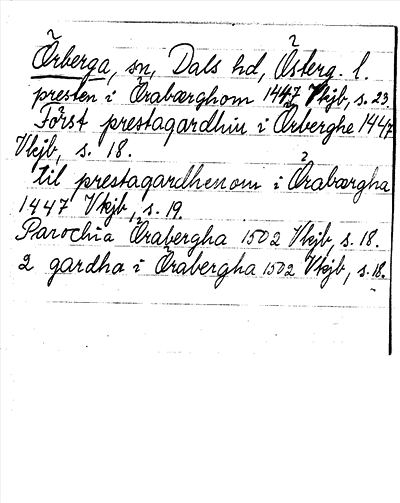 Örberga, sn, Dals hd, Österg. l.
presten i Örabærghom 1447 Vkjb, s. 23.
Först prestagardhin i Ørberghe 1447
Vkjb, s. 18.
til prestagardhenom i Örabærgha
1447 Vkjb, s. 19.
Parochia Örabergha 1502 Vkjb, s. 18.
2 gardha i Örabergha 1502 Vkjb, s. 18.